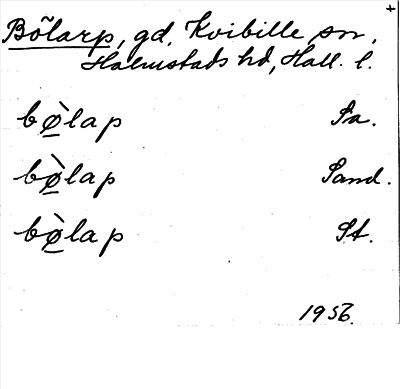 +
Bölarp, gd, Kvibille sn,
Halmstads hd, Hall. l.
bø̀lap Sa.
bø̀lap Sand.
bø̀lap St.
1956.